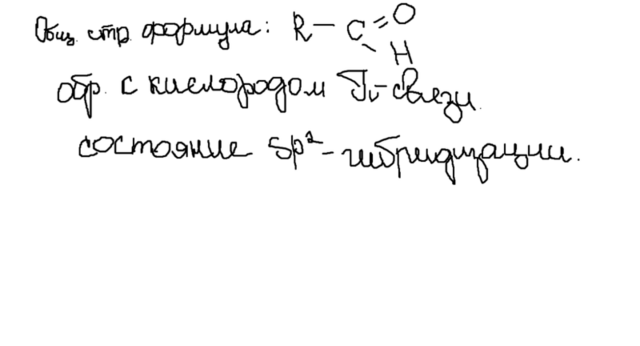 Общ. стр. формула: R – C = O
H
обр. с кислородом π-связи.
состояние Sp²-гибридизации.